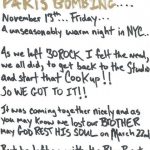 PARIS BOMBING...
November 13th... Friday...
A unseasonably warm night in NYC...
As we left 30 ROCK I felt the need,
we all did, to get back to the Studio
and start that Cookup!!
SO WE GOT TO IT!!
It was coming together nicely and as
you may know we lost our BROTHER
may GOD REST HIS SOUL on March 22nd